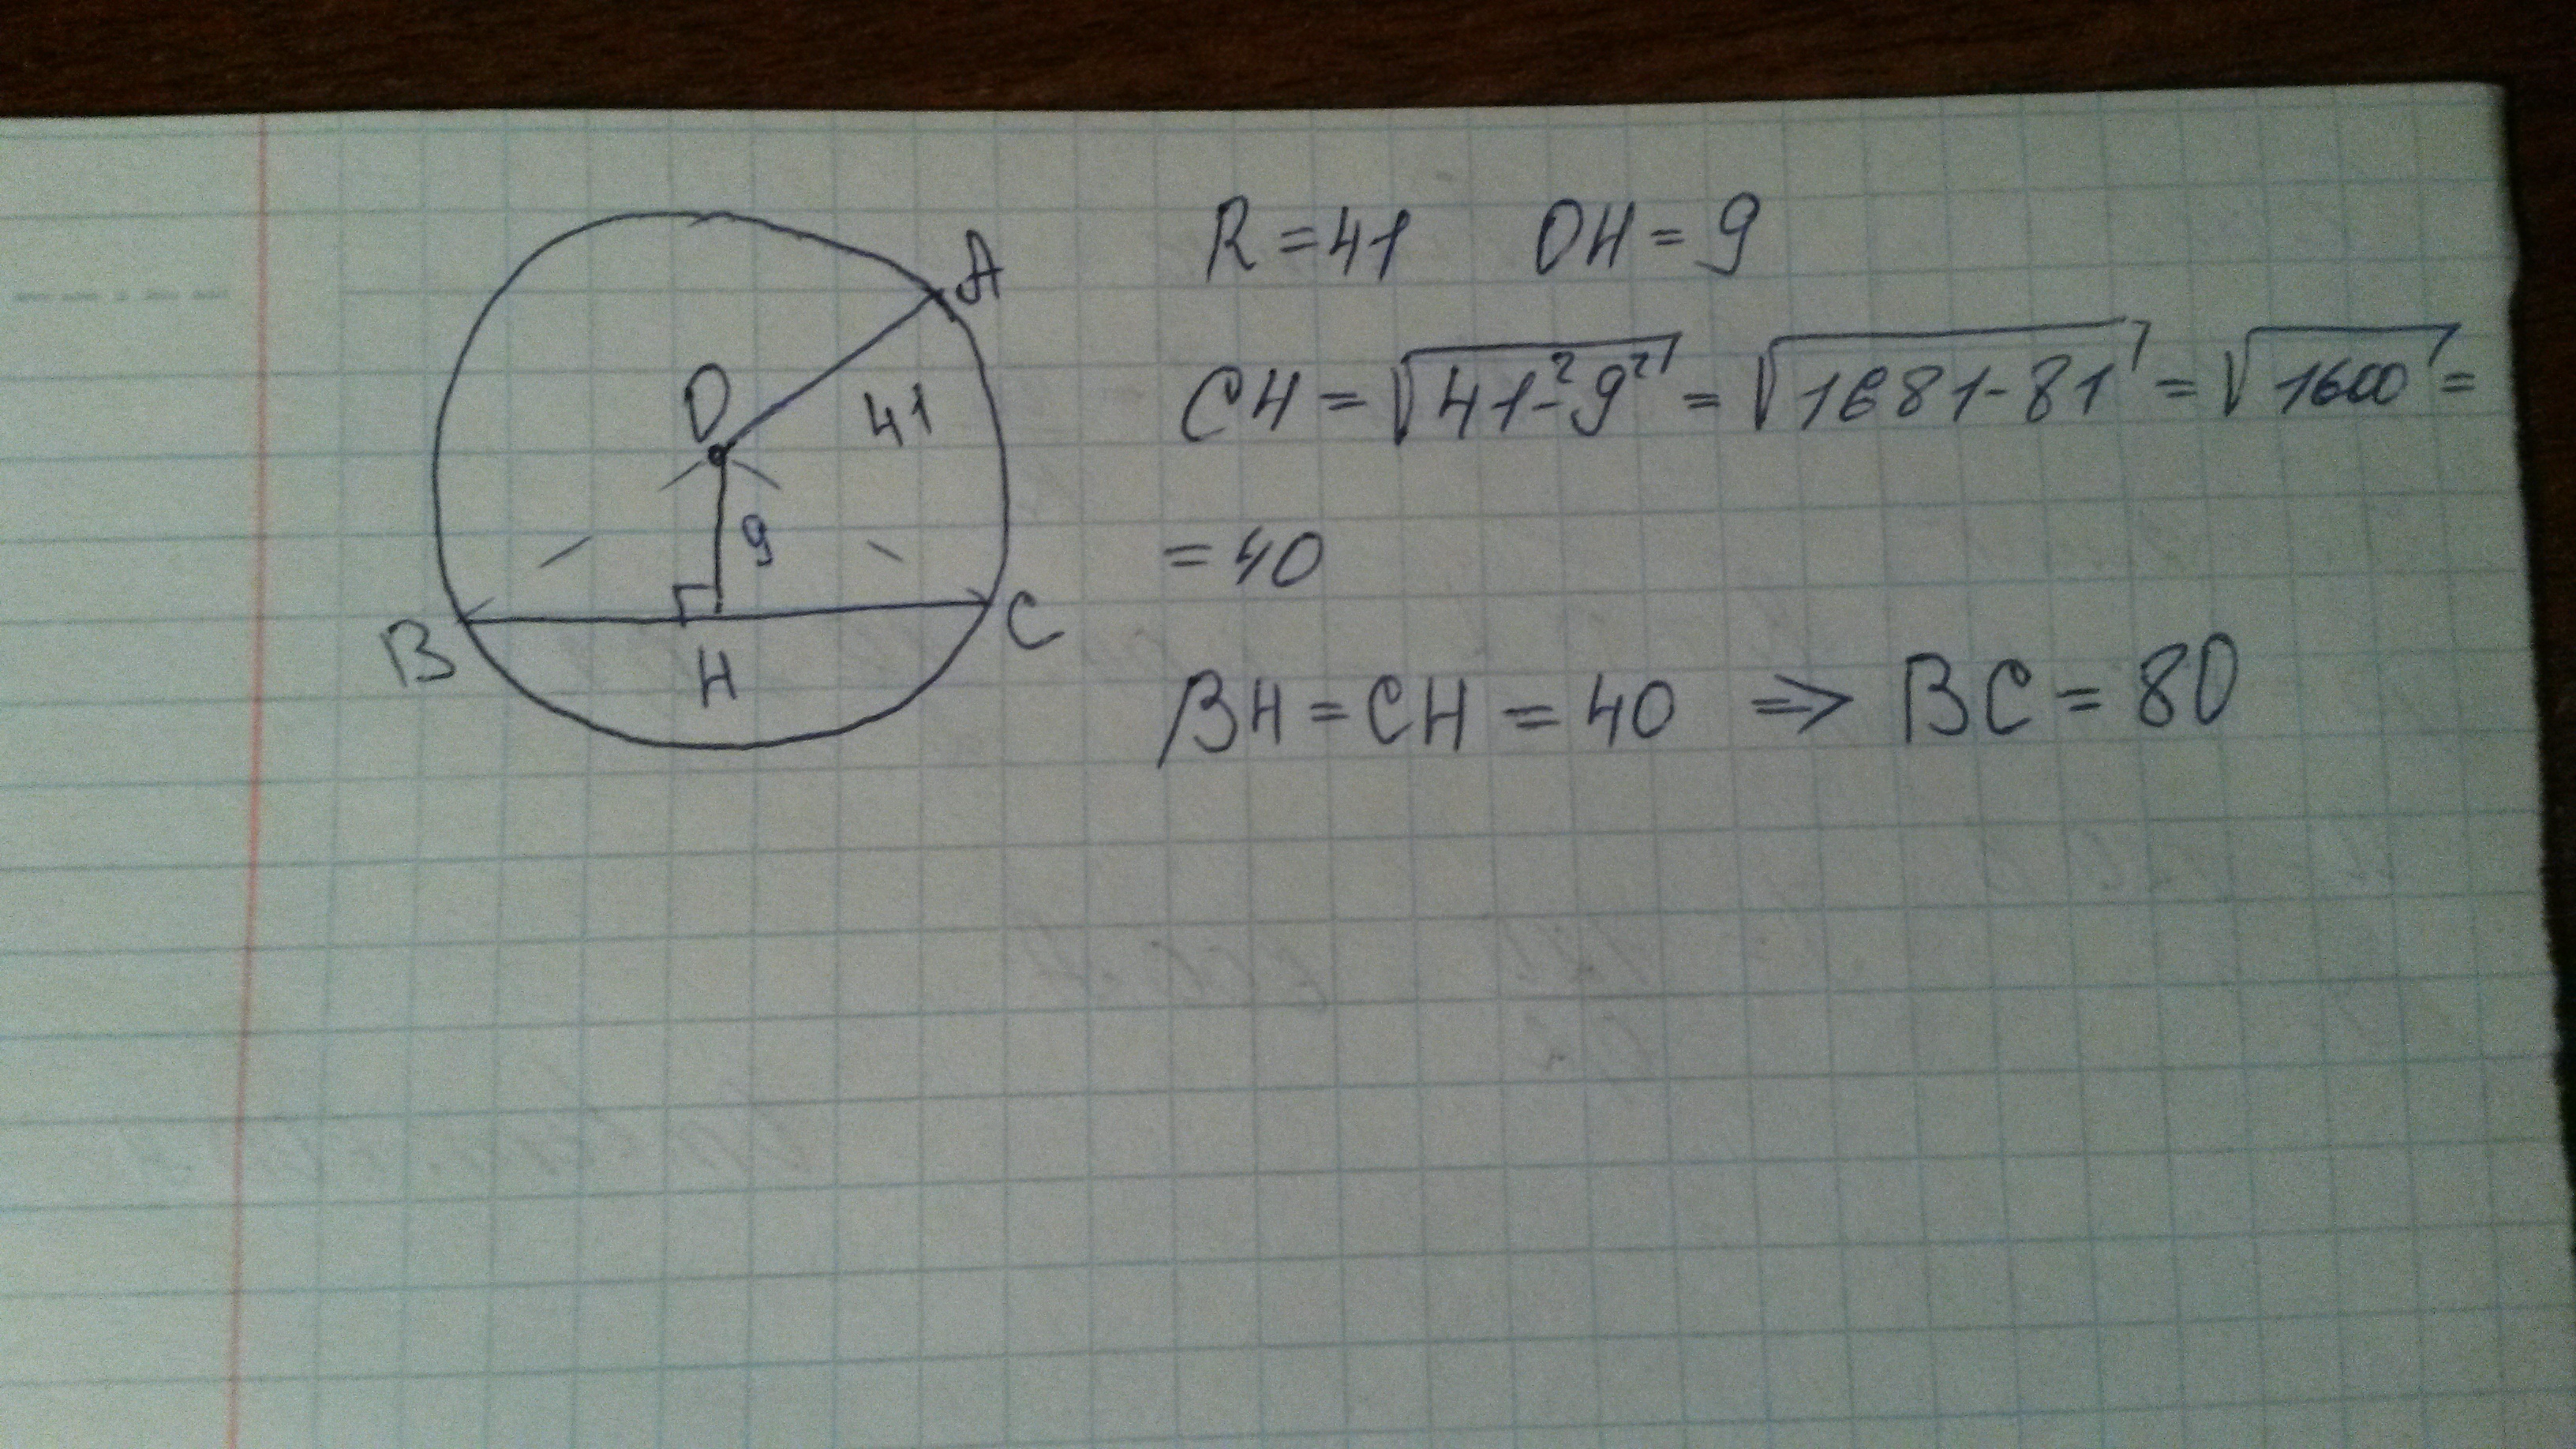 A
O
41
9
B
H
C
R = 41 OH = 9
CH = √41²-9² = √1681-81 = √1600 =
= 40
BH = CH = 40 ⇒ BC = 80